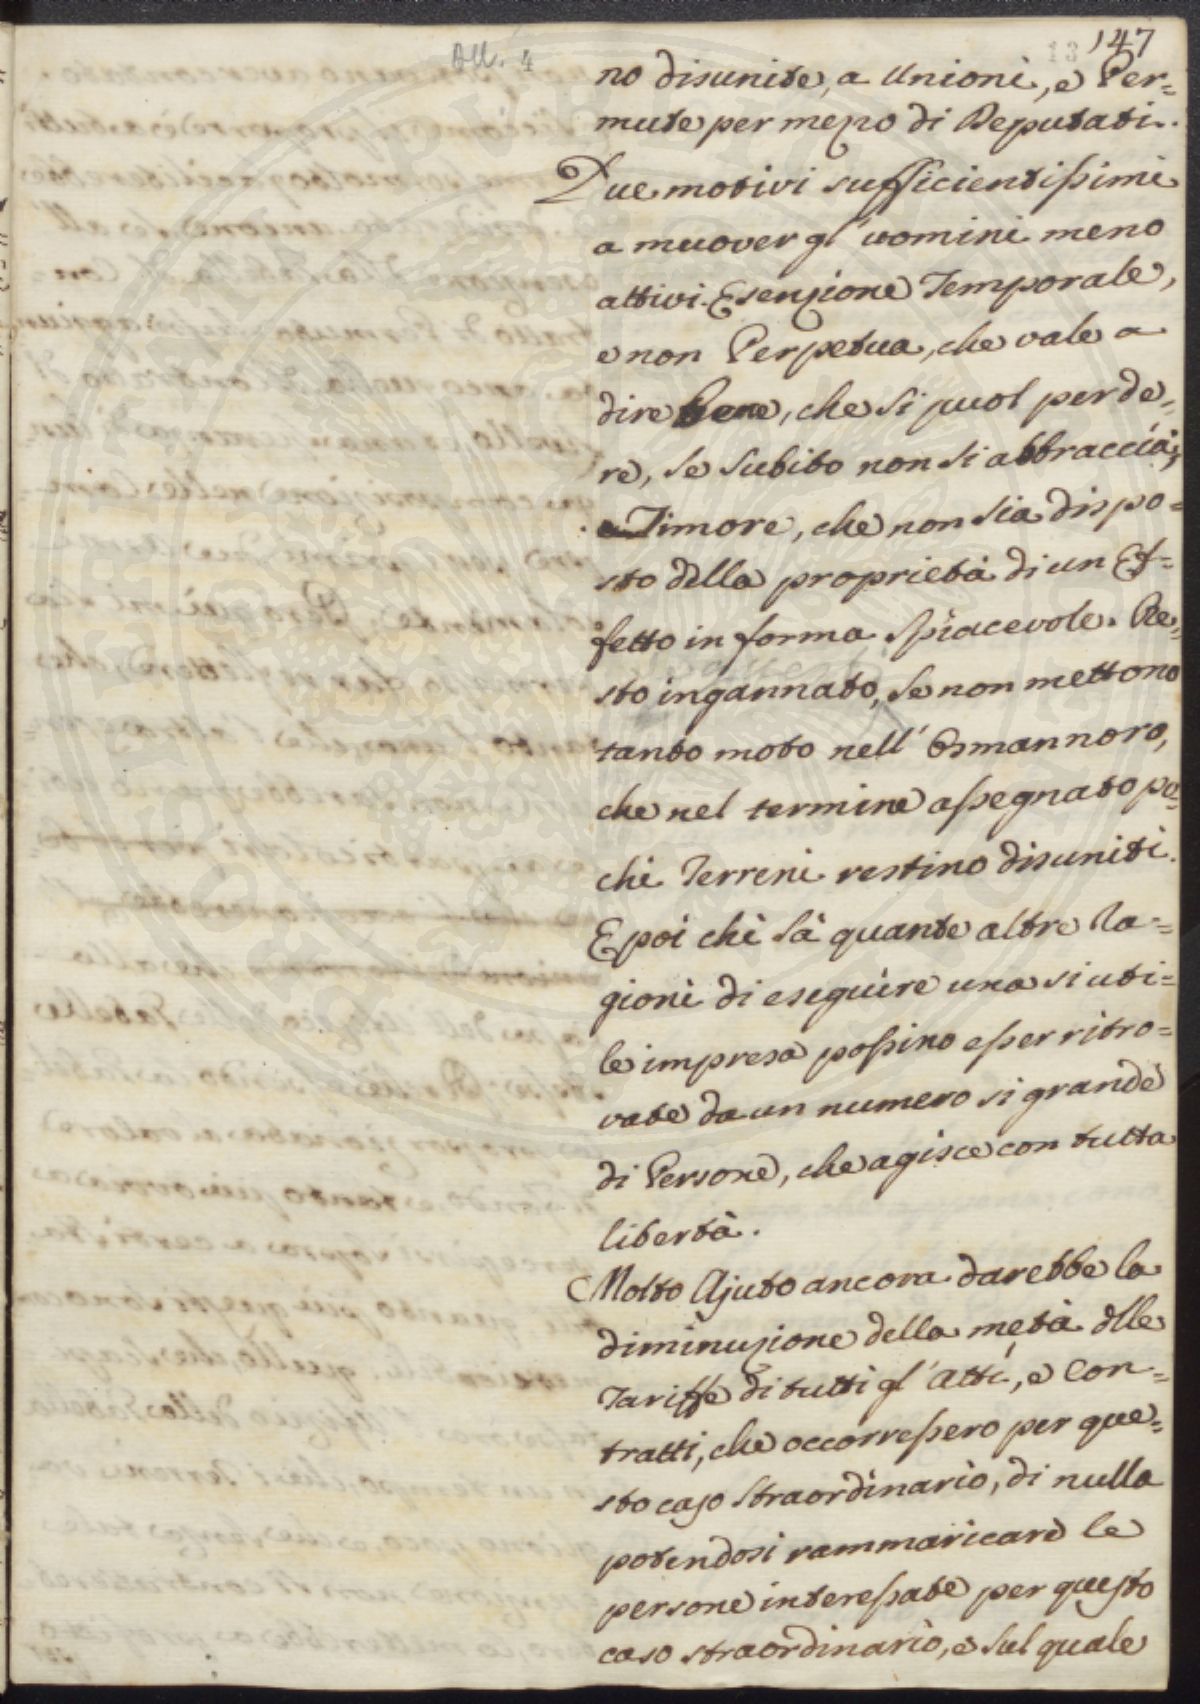 All. 4
13
147
no disunite, a Unioni, e Per=
mute per mezzo di Deputati.
Due motivi sufficientissimi
a muover gl' uomini meno
attivi. Esenzione Temporale,
e non Perpetua, che vale a
dire Bene, che si puol perde=
re, se subito non si abbraccia;
e Timore, che non sia dispo=
sto della proprietà di un Ef=
fetto in forma spiacevole. Re=
sto ingannato, se non mettono
tanto moto nell' Osmannoro,
che nel termine assegnato po=
chi Terreni restino disuniti.
E poi chi sà quante altre Ra=
gioni di eseguire una si uti=
le impresa possino esser ritro=
vate da un numero si grande
di Persone, che agisce con tutta
libertà.
Molto Ajuto ancora darebbe la
diminuzione della metà dlle
Tariffe di tutti gl' Atti, e Con=
tratti, che occorressero per que=
sto caso straordinario, di nulla
potendosi rammaricare le
persone interessate per questo
caso straordinario, e sul quale